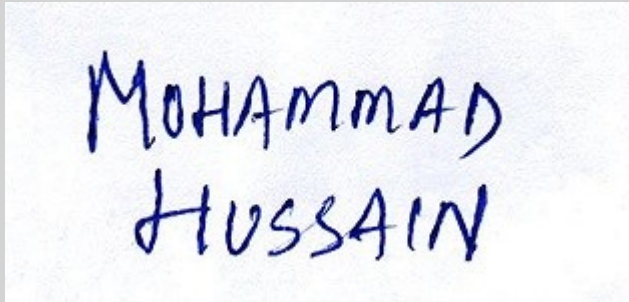 MOHAMMAD
HUSSAIN